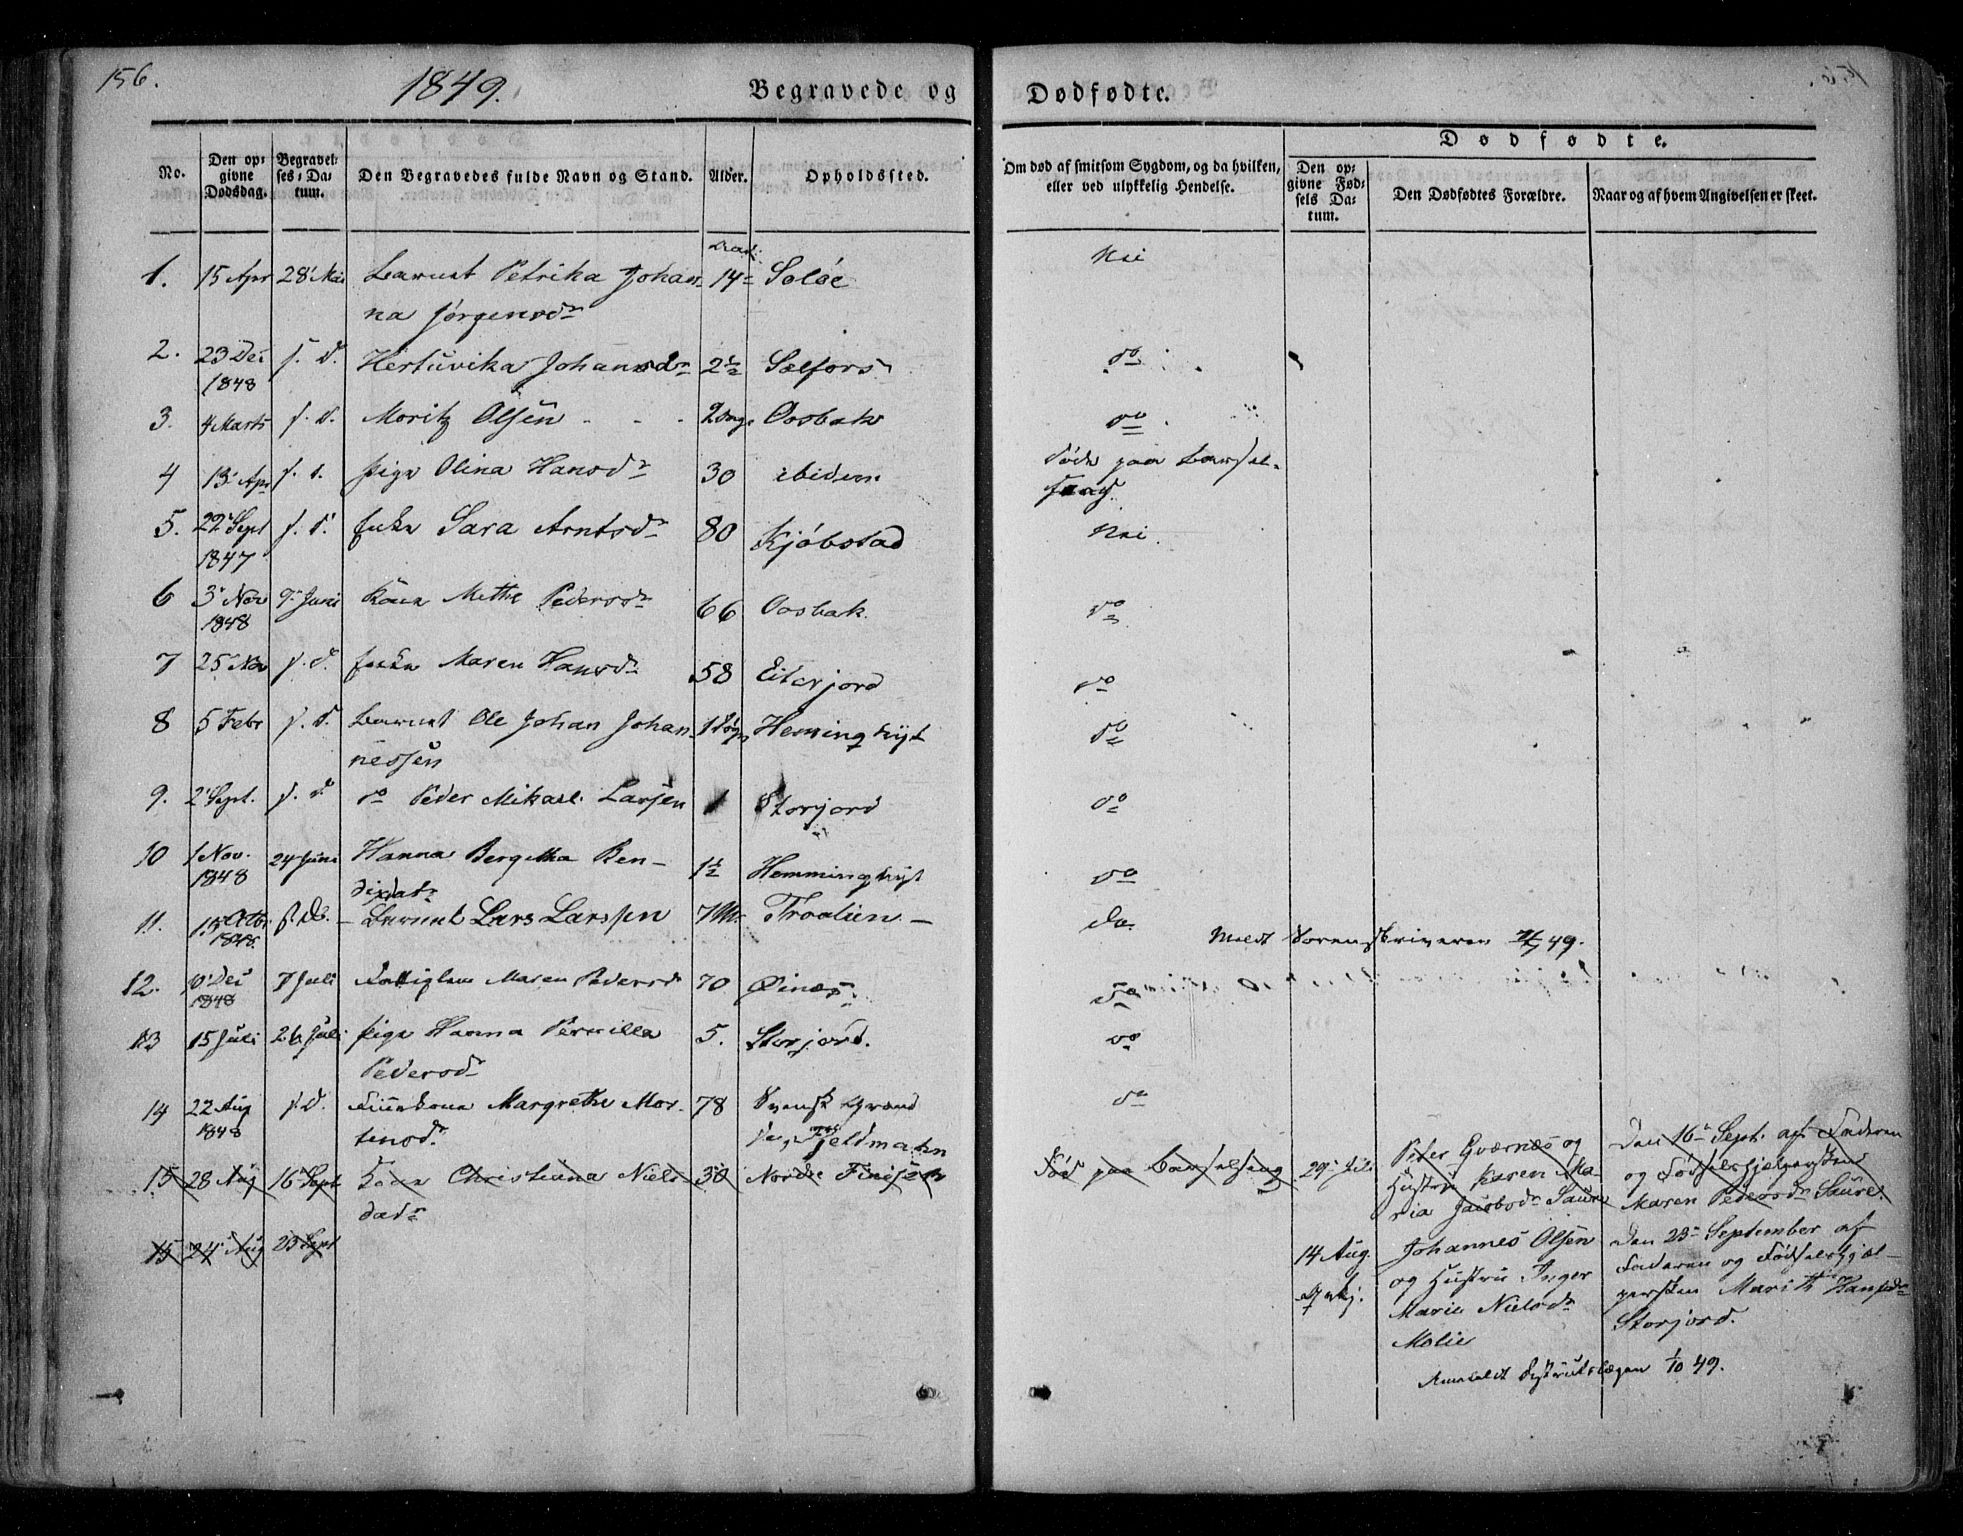 156.
1849.
Begravede og Dødfødte.
No.
Den op-
givne
Dødsdag.
Begravel-
ses-Da-
tum.
Den Begravedes fulde Navn og Stand.
Alder.
Opholdssted.
Om død af smitsom Sygdom, og da hvilken,
eller ved ulykkelig Hendelse.
Dødfødte.
Den op-
givne Fød-
sels Da-
tum.
Den Dødfødtes Forældre.
Naar og af hvem Angivelsen er skeet.
1. 15 Apr 28 Mai Barnet Petrika Johan- 14 Soløe Nei
na Jørgensdr
2. 23 Dec s. d. Hertuvika Johansdr 2½ Sælfors do
1848
3. 4 Marts s. d. Moritz Olsen Oosbak do
4 13 Apr s. d. Pige Olina Hansdr 30 ibidem Døde paa Barsel-
seng.
5. 22 Sept s. d. Enke Sara Arntsdr 80 Kjøbstad Nei
1847
6 3 Nov 9 Juni Kone Mette Pedersdr 66 Oosbak do
1848
7 25 Nov s. d. Enke Maren Hansdr 58 Eiterjord do
8 5 Febr s. d. Barnet Ole Johan Johan- Hemminghyt do
nessen
9. 2 Sept. s. d. do Peder Mikael Larsen 1 Storjord do
10 1 Nov. 24 Juni Hanna Bergitha Ben- 1½ Hemminghyt do
1848 dixdatr
11. 15 Octbr s. d. Barnet Lars Larssen 7 M. Troalien do
1848
Meldt Sorenskriveren 49.
12. 10 Dec 7 Juli Maren Pedersd 70 Øinæs do
1848
13 15 Juli 26 Juli Pige Hanna Pernilla 5. Storjord. do
Pedersdr
14 22 Aug s. d. Finnekone Margrethe Mor- 78 Svensk do
1848 tensdr. Fjeldmahn
15 28 Aug 16 Sept Kone Christianna Niels- 30 Nordre Død paa Barselseng
dadr
29 Juli Peter Gværnæs og Den 16 Sept. af Faderen
Hustru Karen Ma- og Fødselshjelpersken
ria Jacobsdr Saure Maren Pedersdr Saure.
15 24 Aug 23 Sept
14 Aug. Johannes Olsen Den 23 September af
og Hustru Inger Faderen og Fødselshjæl-
Marie Nielsdr persken Marith Hansdr
Molie Storjord.
Anmeldt Districtslægen 1/10 49.